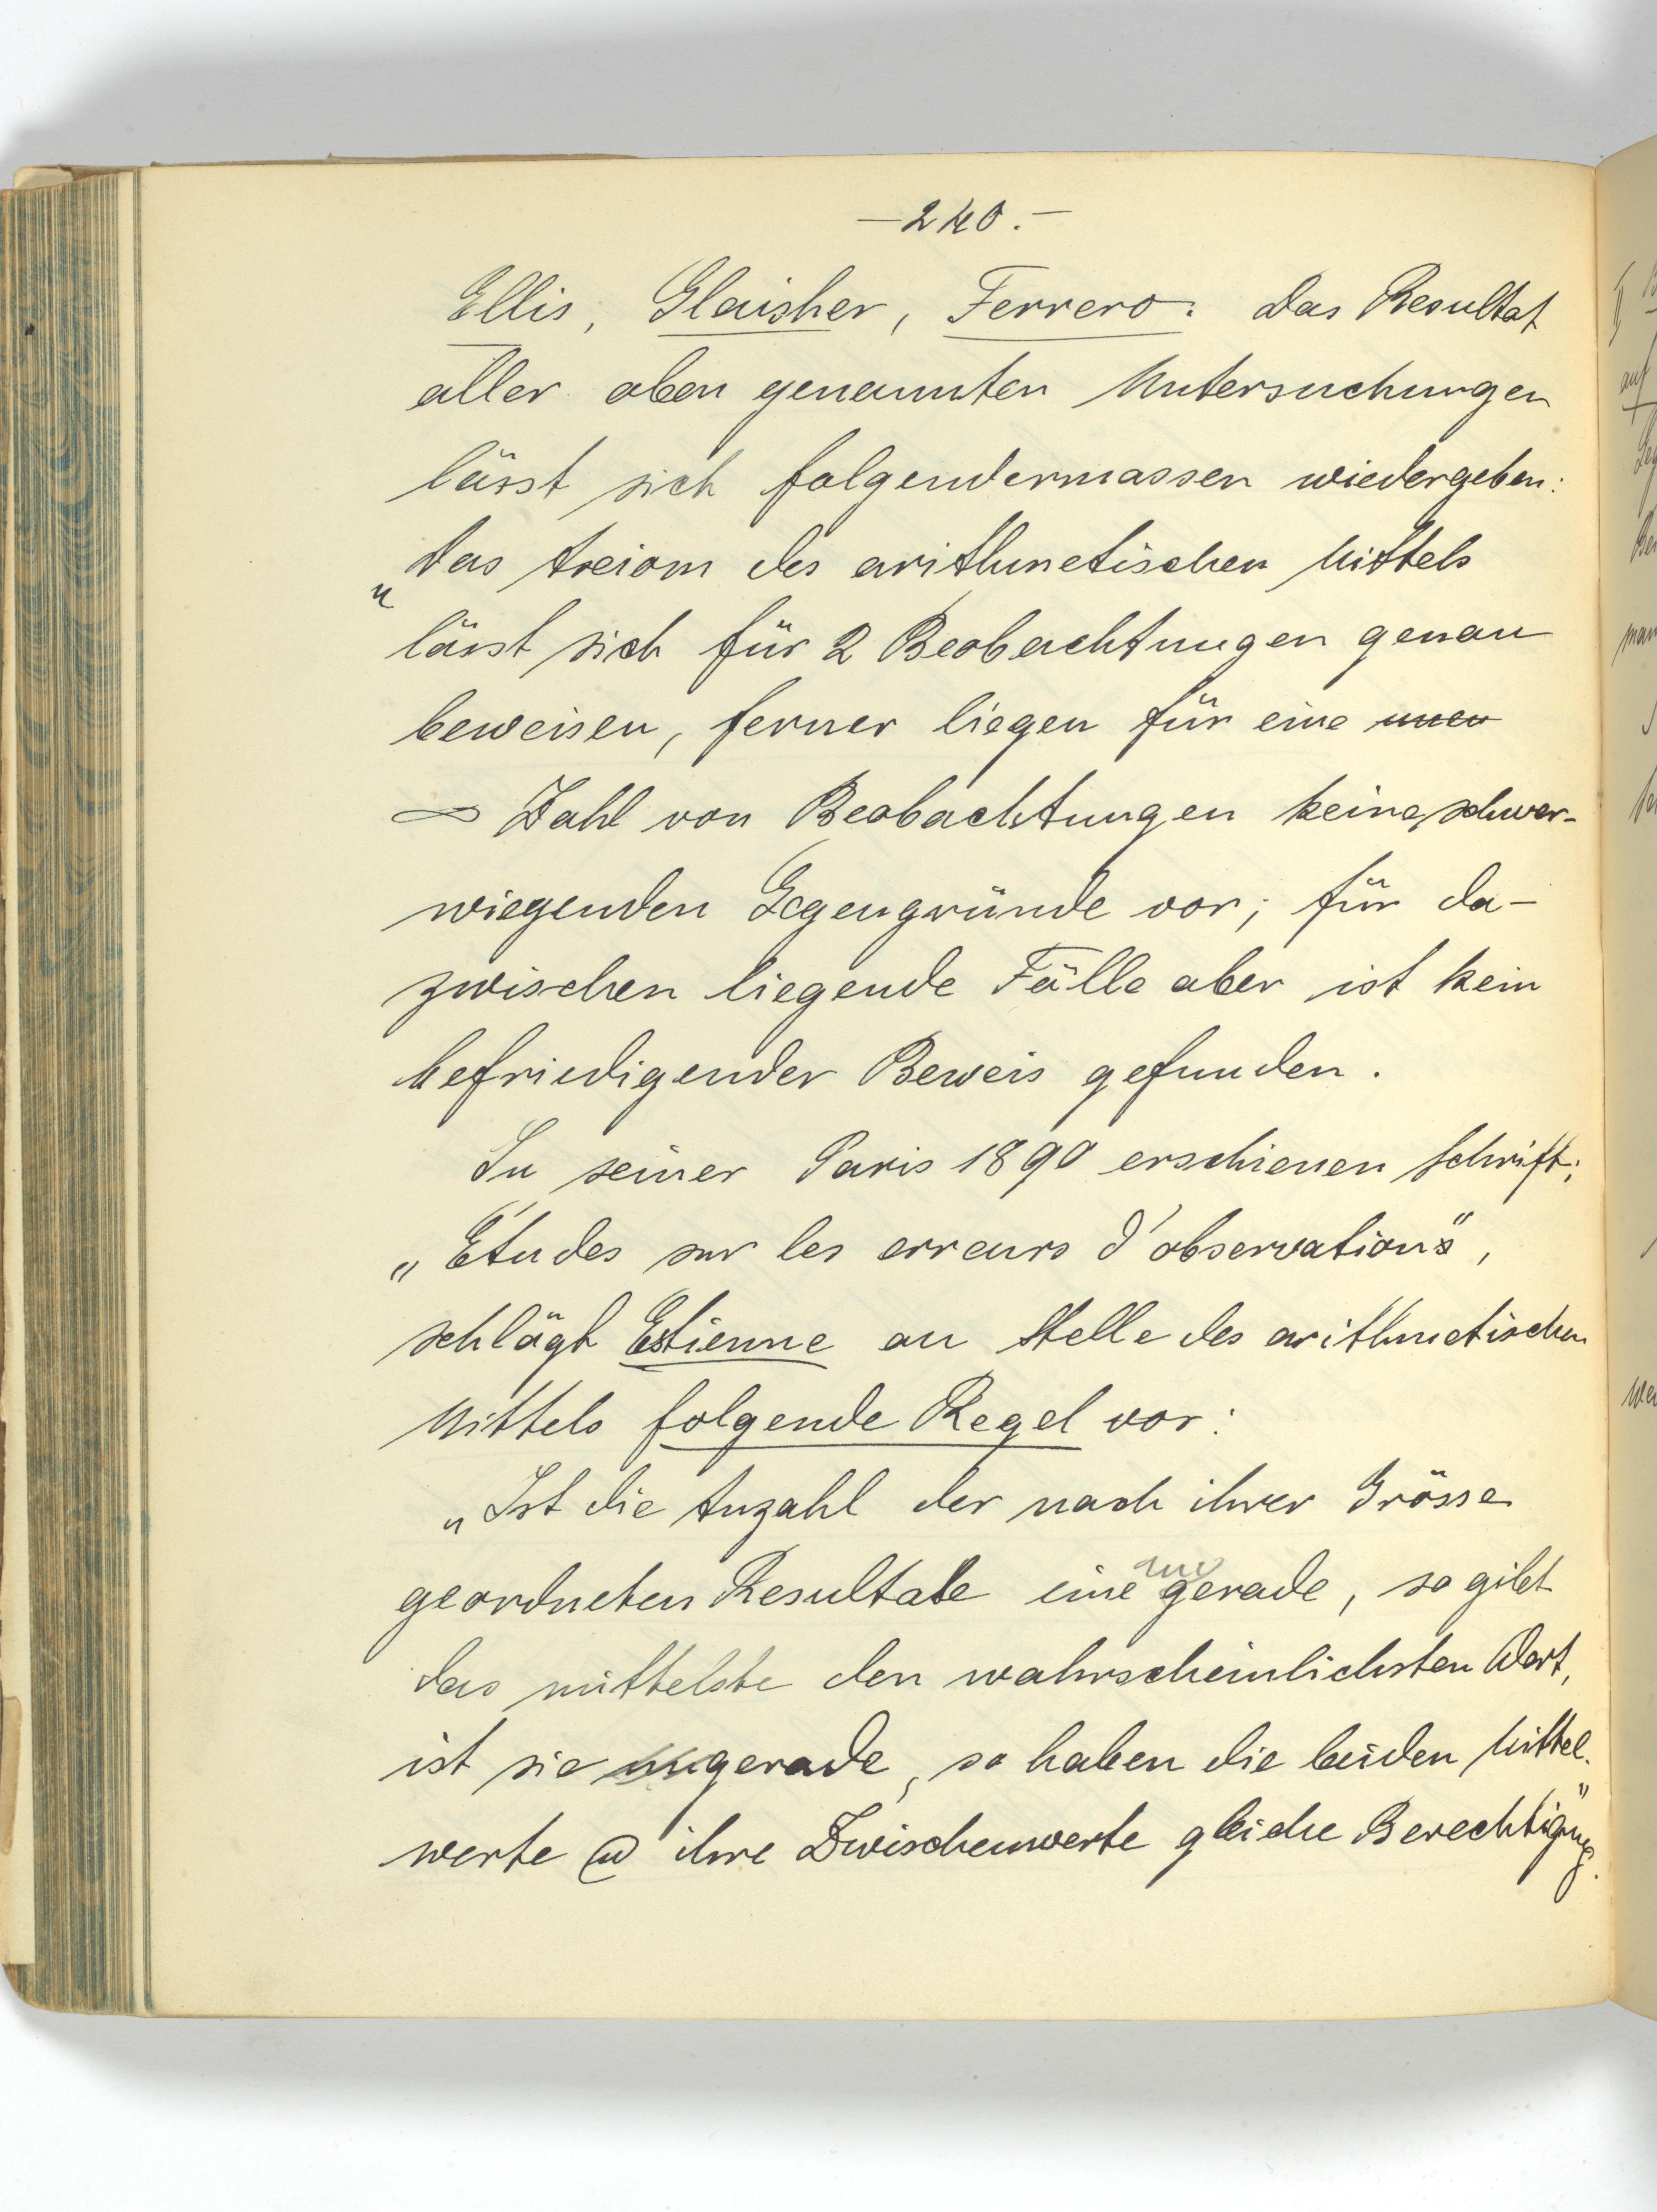 — 240. —
Ellis, Glaisher, Ferrero. Das Resultat
aller oben genannten Untersuchungen
lässt sich folgendermassen wiedergeben:
„Das Axiom des arithmetischen Mittels
lässt sich für 2 Beobachtungen genau
beweisen, ferner liegen für eine unen
∞ Zahl von Beobachtungen keine schwer-
wiegenden Gegengründe vor; für da-
zwischen liegende Fälle aber ist kein
befriedigender Beweis gefunden.
In seiner Paris 1890 erschienen Schrift;
„Études sur les erreurs d'observations",
schlägt Estienne an Stelle des arithmetischen
Mittels folgende Regel vor:
„Ist die Anzahl der nach ihrer Grösse
geordneten Resultate eine ungerade, so gibt
das mittelste den wahrscheinlichsten Wert,
ist sie ungerade, so haben die beiden Mittel-
werte u ihre Zwischenwerte gleiche Berechtigung."
auf
man